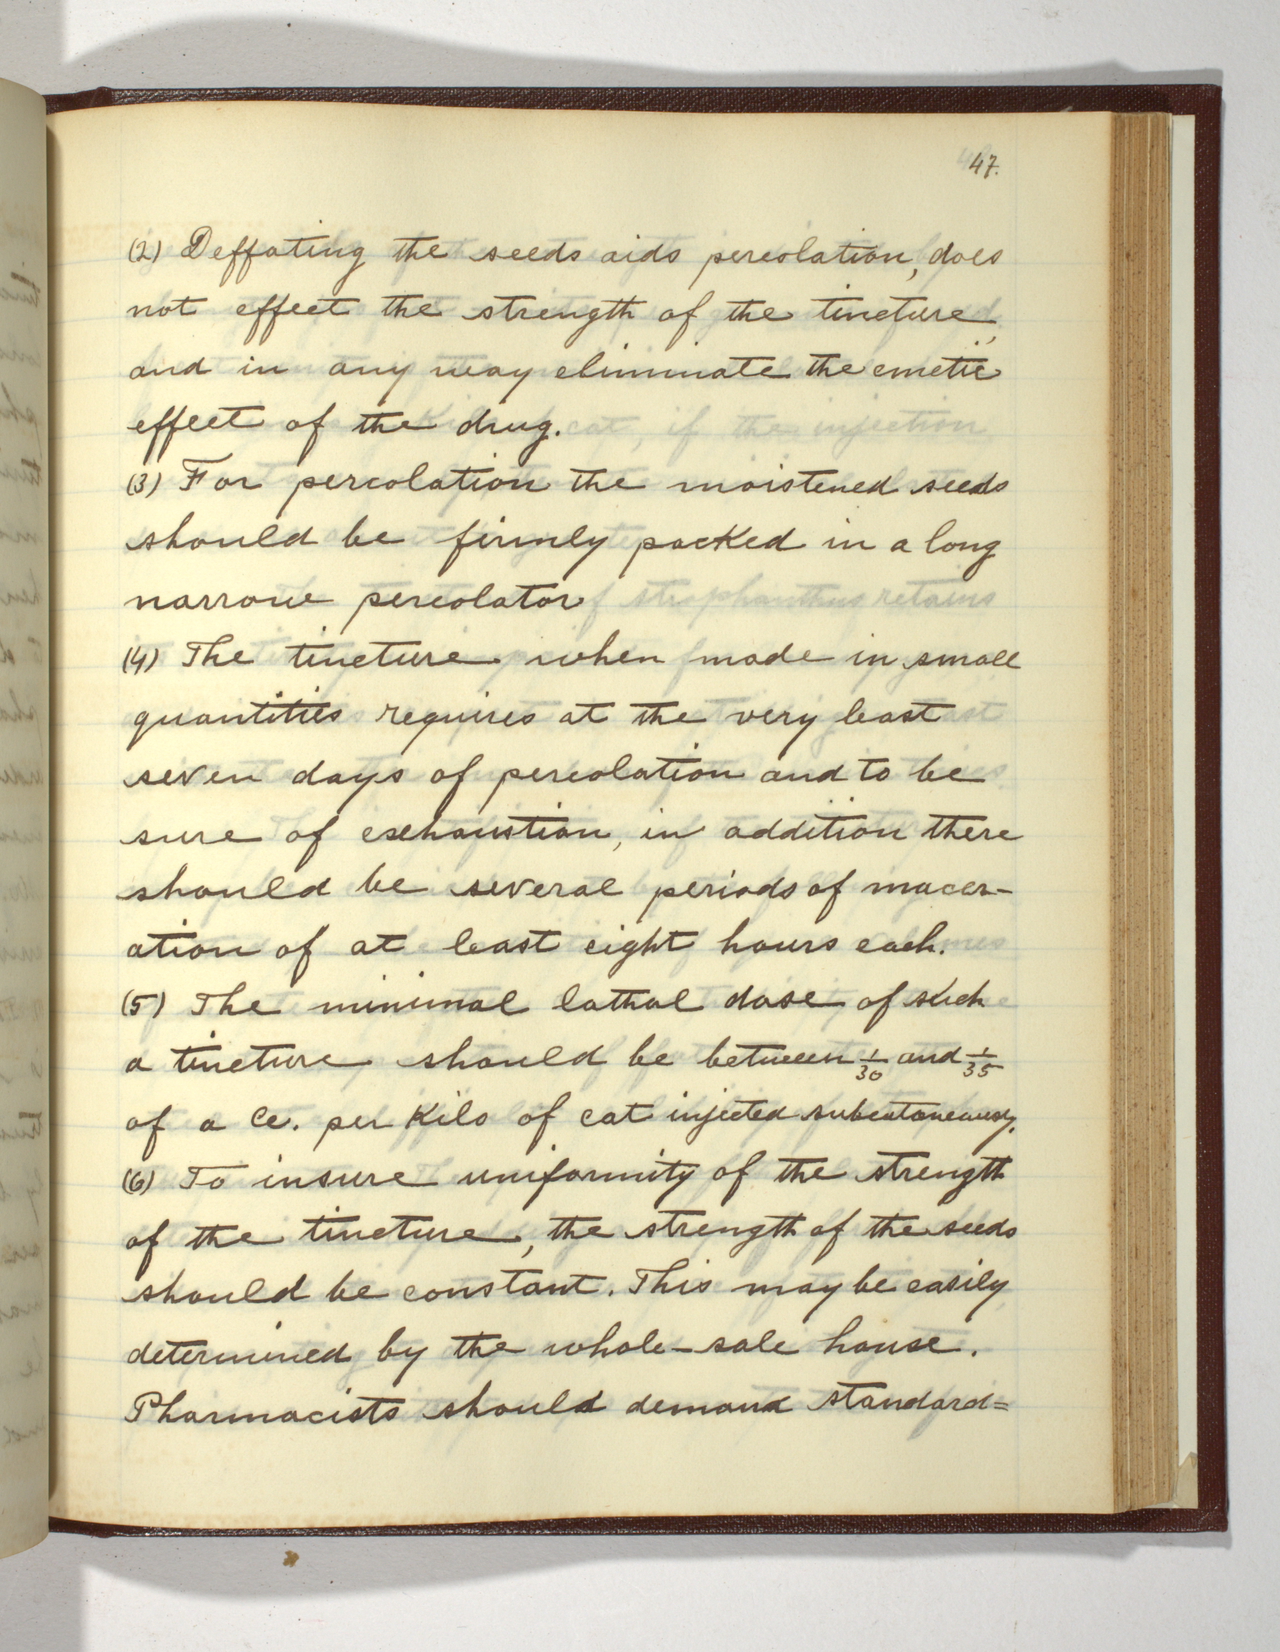 47.
(2) Deffating the seeds aids percolation, does
not effect the strength of the tincture,
and in any way eliminate the emetic
effect of the drug.
(3) For percolation the moistened seeds
should be firmly packed in a long
narrow percolator
(4) The tincture when made in small
quantities requires at the very least
seven days of percolation and to be
sure of exhaustion, in addition there
should be several periods of macer-
ation of at least eight hours each.
(5) The minimal lathal dose of such
a tincture should be between 1/30 and 1/35
of a Cc. per Kilo of cat injected subcutaneously.
(6) To insure uniformity of the strength
of the tincture, the strength of the seeds
should be constant. This may be easily
determined by the whole-sale house.
Pharmacists should demand standard=